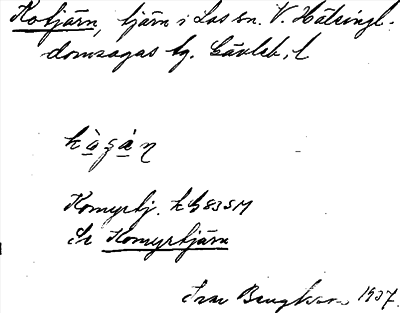 Kotjärn, tjärn i Los sn. V. Hälsingl.
domsagas tg. Gävleb. l
Komyrtj. kb 83 SM
Se Komyrtjärn
Ivar Bengtsson 1937.